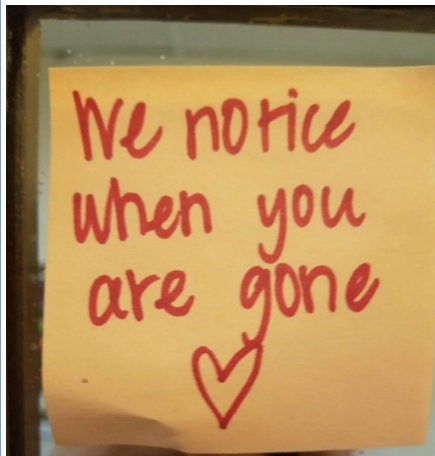 We notice
when you
are gone